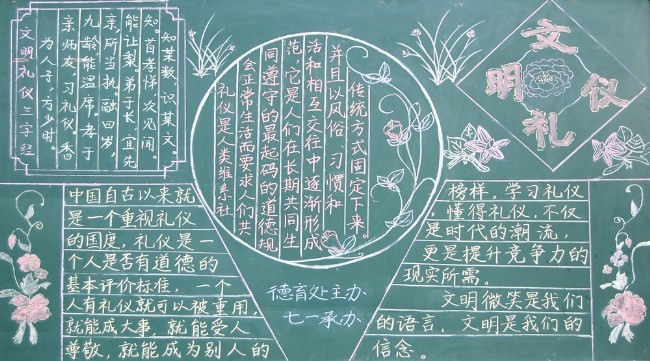 文明礼仪三字经
为人子，方少时。
亲师友，习礼仪。香
九龄能温席。孝于
亲，所当执。融四岁，
能让梨。弟于长，宜先
知。首孝悌，次见闻。
知某数，识某文。
礼仪是人类维系社
会正常生活而要求人们共
同遵守的最起码的道德规
范，它是人们在长期共同生
活和相互交往中逐渐形成
并且以风俗、习惯和
传统方式固定下来。
文明礼仪
中国自古以来就
是一个重视礼仪
的国度，礼仪是一
个人是否有道德的
基本评价标准，一个
人有礼仪就可以被重用，
就能成大事，就能受人
尊敬，就能成为别人的
榜样。学习礼仪
，懂得礼仪，不仅
是时代的潮流，
更是提升竞争力的
现实所需。
文明微笑是我们
的语言，文明是我们的
信念。
德育处主办
七一承办